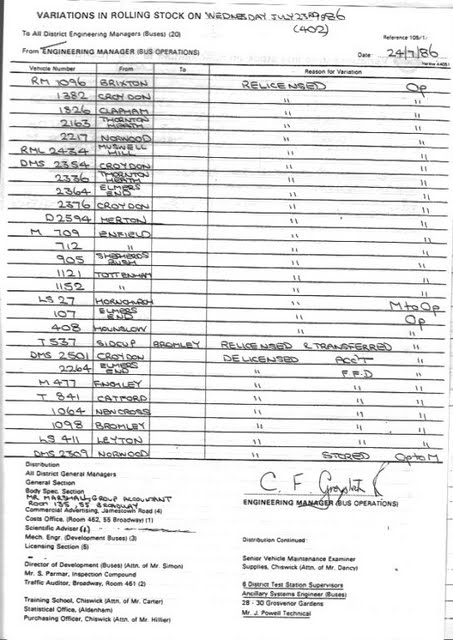 VARIATIONS IN ROLLING STOCK ON WEDNESDAY JULY 23RD 986
(402)
To All District Engineering Managers (Buses) (20)
Reference 105/1/
From ENGINEERING MANAGER (BUS OPERATIONS)
Date 24/7/86
Vehicle Number From To Reason for Variation
RM 1096 BRIXTON RELICENSED Op
1382 CROYDON " "
1826 CLAPHAM " "
2163 THORNTON HEATH " "
2217 NORWOOD " "
RML 2434 MUSWELL HILL " "
DMS 2354 CROYDON " "
2336 THORNTON HEATH " "
2364 ELMERS END " "
2376 CROYDON " "
D2594 MERTON " "
M 709 ENFIELD " "
712 " " "
905 SHEPHERDS BUSH " "
1121 TOTTENHAM " "
1152 " " "
LS 27 HORNCHURCH " M to Op
107 ELMERS END " Op
408 HOUNSLOW " "
T 537 SIDCUP BROMLEY RELICENSED & TRANSFERRED "
DMS 2501 CROYDON DELICENSED ACC'T "
2264 ELMERS END " F.F.D "
M 477 FINCHLEY " " "
T 841 CATFORD " " "
1064 NEW CROSS " " "
1098 BROMLEY " " "
LS 411 LEYTON " " "
DMS 2309 NORWOOD " STORED Op to M
Distribution
All District General Managers
General Section
Body Spec. Section
MR MARSHALL, GROUP ACCOUNTANT
ROOM 135, 55 BROADWAY
Commercial Advertising, Jamestown Road (4)
Costs Office, (Room 462, 55 Broadway) (1)
Scientific Adviser (1)
Mech. Engr. (Development Buses) (3)
Licensing Section (5)
Director of Development (Buses) (Attn. of Mr. Simon)
Mr. S. Parmar, Inspection Compound
Traffic Auditor, Broadway, Room 461 (2)
Training School, Chiswick (Attn. of Mr. Carter)
Statistical Office, (Aldenham)
Purchasing Officer, Chiswick (Attn. of Mr. Hillier)
C. F.
ENGINEERING MANAGER (BUS OPERATIONS)
Distribution Continued
Senior Vehicle Maintenance Examiner
Supplies, Chiswick (Attn. of Mr. Dancy)
6 District Test Station Supervisors
Ancillary Systems Engineer (Buses)
28 - 30 Grosvenor Gardens
Mr. J. Powell Technical